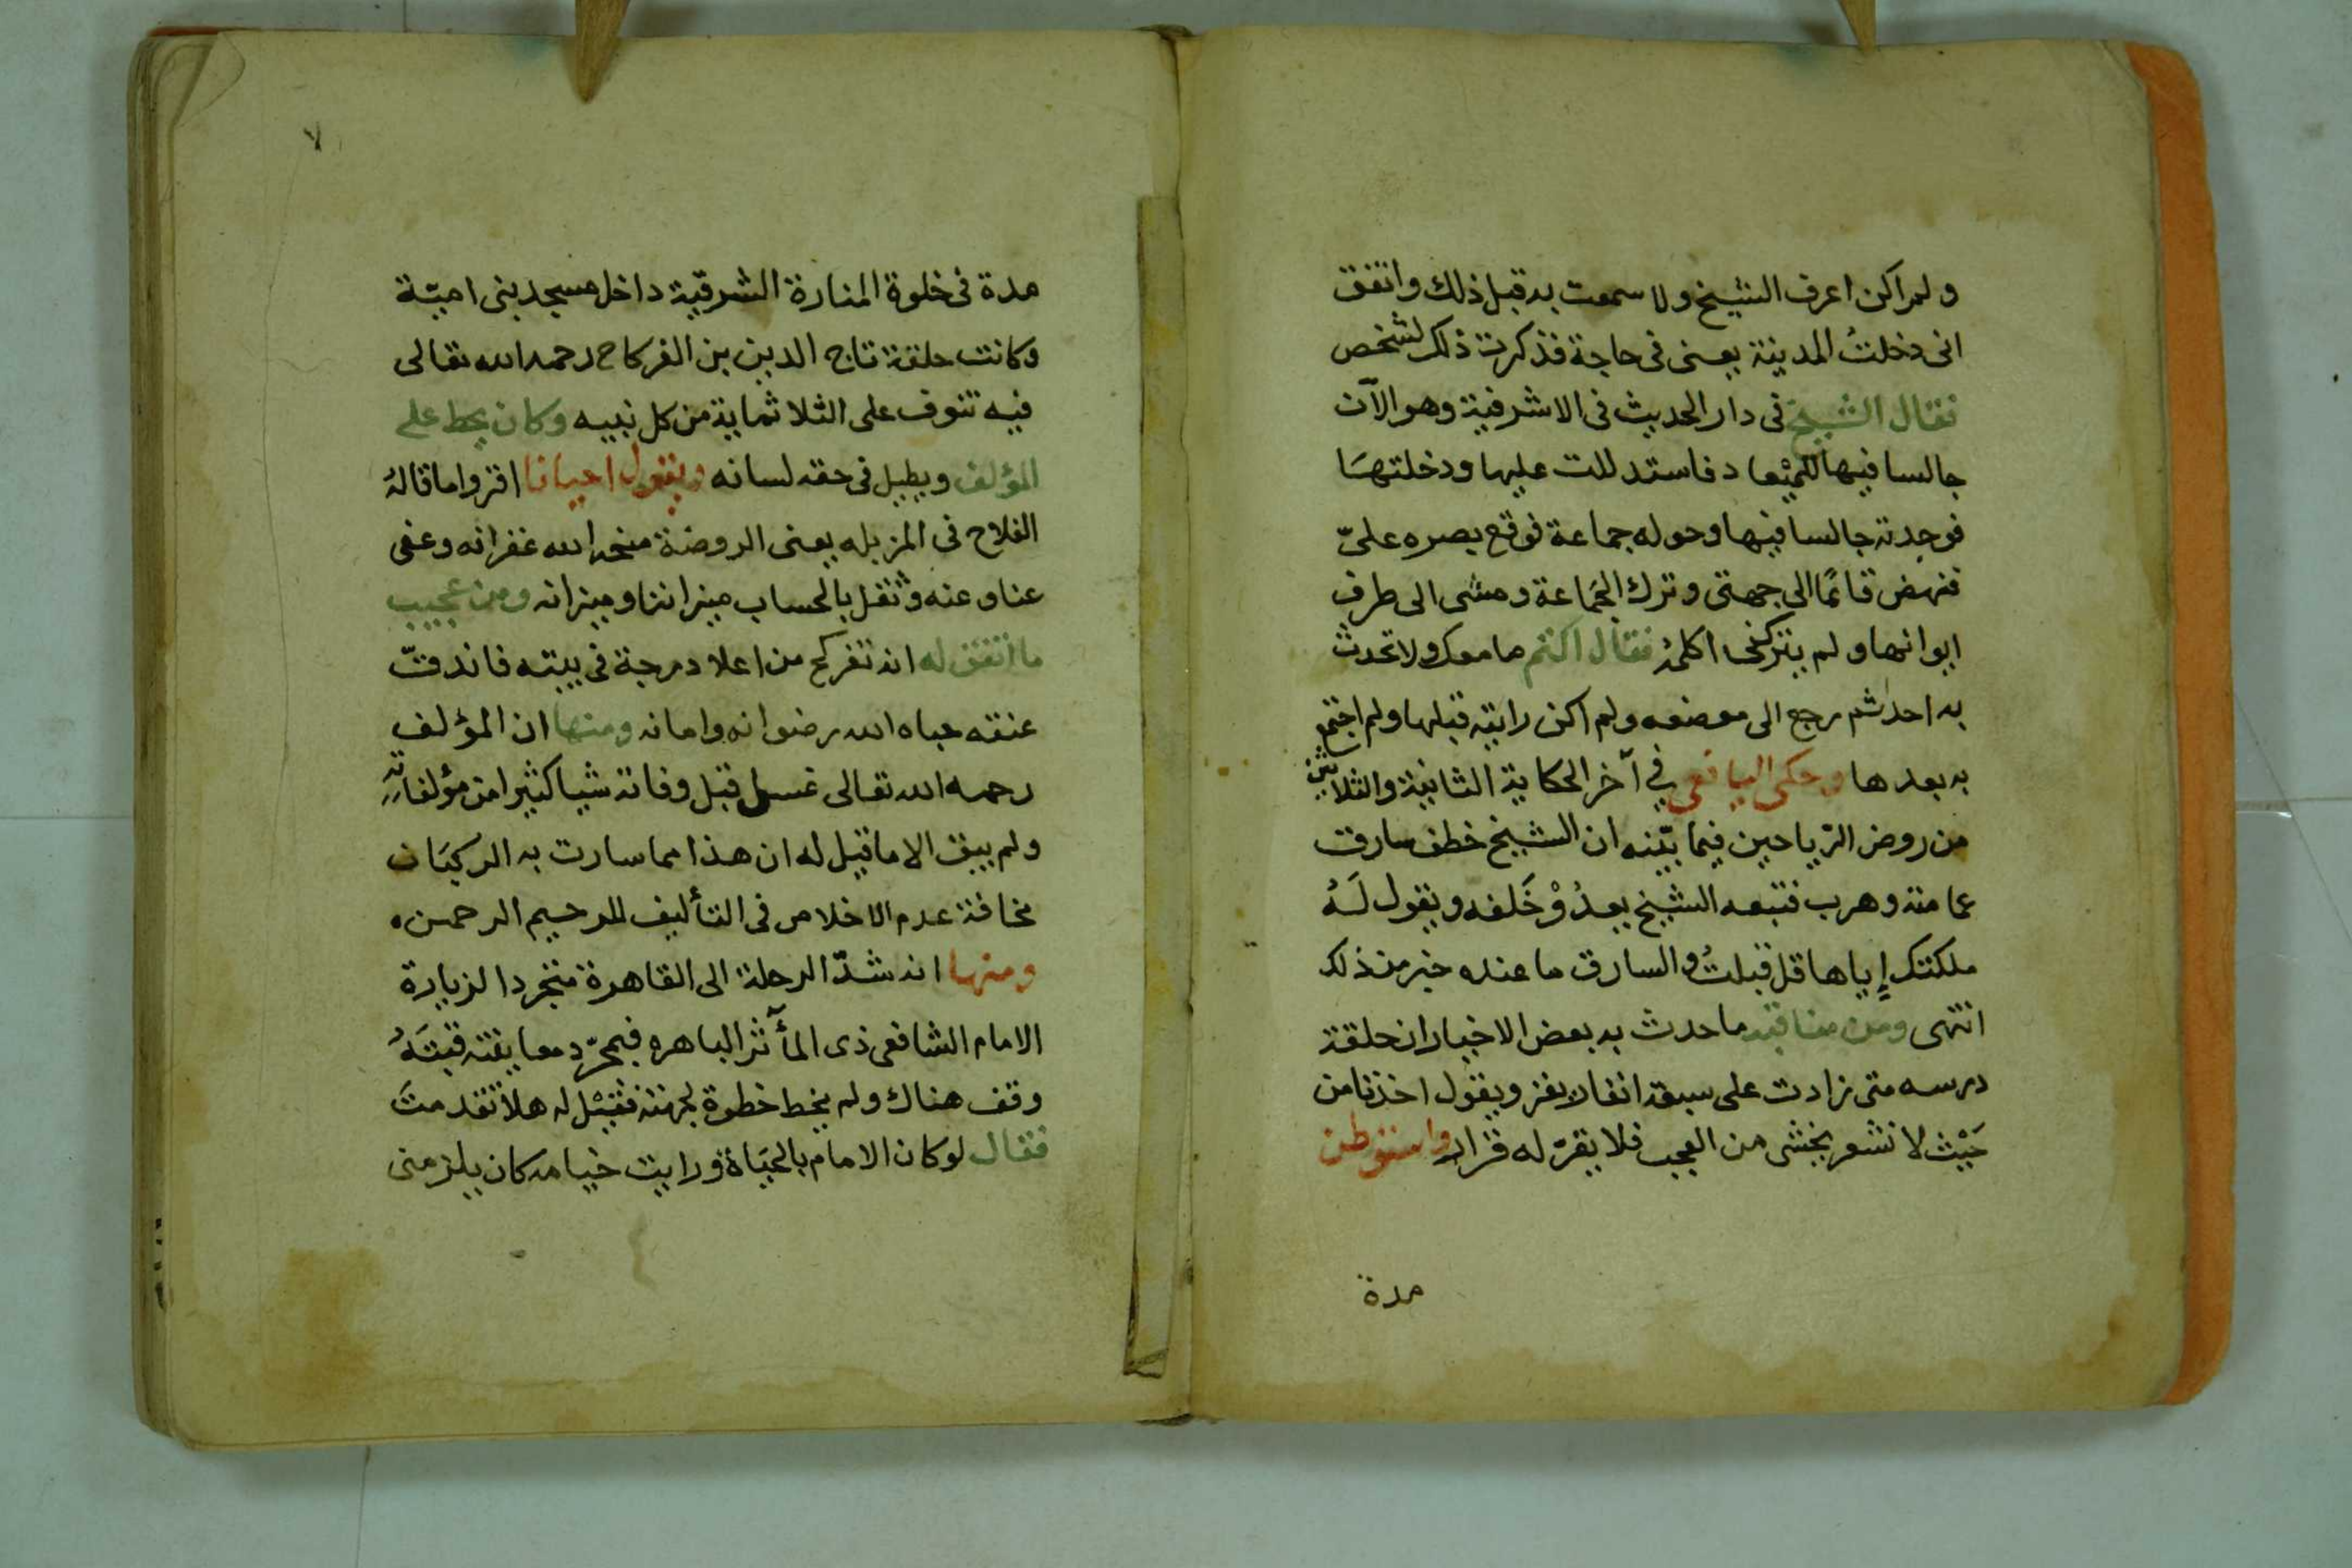 ولم اكن اعرف الشيخ ولا سمعت به قبل ذلك واتفق
انى دخلتُ المدينة يعنى فى حاجة فذكرت ذلك لشخص
فقال الشيخ فى دار الحديث فى الاشرفية وهو الآن
جالسا فيها للميْعاد فاستدللت عليها ودخلتهَا
فوجدته جالسا فيها وحوله جماعة فوقع بصره علىّ
فنهض قائمًا الى جهتى وترك الجَماعة ومشى الى طرف
ايوانها ولم يتركنى اكلمُه فقال اكتم ما معك ولا تحدث
به احدا ثم رجع الى موضعه ولم اكن رايته قبلها ولم اجتمع
به بعدها وحكى اليافعى في آخر الحكاية الثانية والثلاثين
من روض الرّياحين فيما بيّنه ان الشيخ خطف سارق
عمامته وهرب فتبعه الشيخ يعدُوْ خَلفه ويقول لَهُ
ملكتك إياها قل قبلتُ والسارق ما عنده خبر من ذلك
انتهى ومن مناقبه ما حدث به بعض الاخيار ان حلقة
درسه متى زادت على سبعة انفار يفز ويقول اخذنا من
حَيْث لا نشعر يخشى من العجب فلا يقرّ له قرار واستوطن
مدة
٧
مدة فى خلوة المنارة الشرقية داخل مسجد بنى اميّة
وكانت حلقة تاج الدين بن الفركاح رحمه الله تعالى
فيه تنوف على الثلاثماية من كل نبيه وكان يحط على
المؤلف ويطيل فى حقه لسانه ويقول احيانا اقروا ما قالهُ
الفلاح فى المزبله يعنى الروضة منحه الله غفرانه وعفى
عنا وعنه وثقل بالحساب ميزاننا وميزانه ومن عجيب
ما اتفق له انه تفركح من اعلا درجة فى بيته فاندقتّ
عنقه حباه الله رضوانه وامانه ومنها ان المؤلف
رحمه الله تعالى غسل قبل وفاته شيا كثيرا من مؤلفاتِهِ
ولم يبق الا ما قيل له ان هذا مما سارت به الركبَان
مخافة عدم الاخلاص فى التأليف للرحيم الرحمن ه
ومنها انه شدّ الرحلة الى القاهرة متجردا لزيارة
الامام الشافعى ذى المأثر الباهره فبمجرّد معاينته قبتَهُ
وقف هناك ولم يخط خطوة لجهته فقيْل له هلا تقدمتَ
فقال لو كان الامام بالحَيَاة ورايت خيامه كان يلزمنى